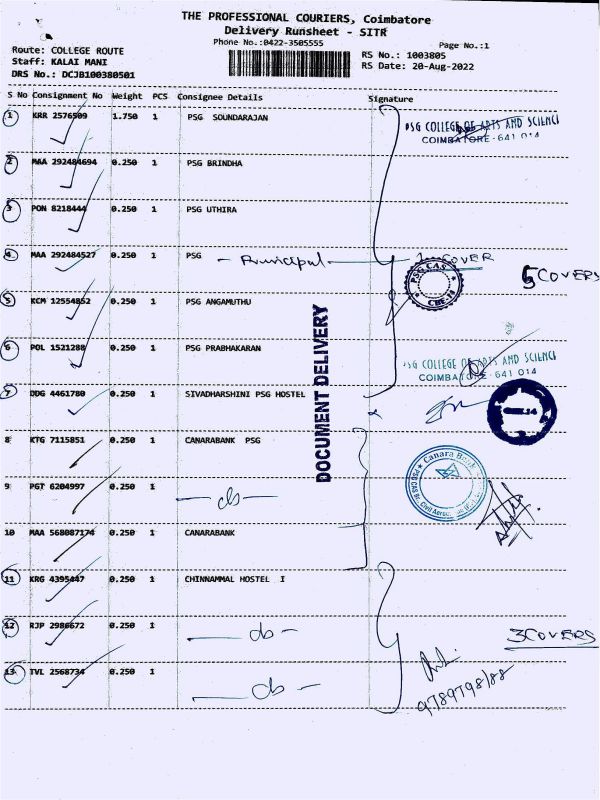 THE PROFESSIONAL COURIERS, Coimbatore
Delivery Runsheet - SITR
Phone No.:0422-3505555
Page No.:1
Route: COLLEGE ROUTE
Staff: KALAI MANI
DRS No.: DCJB100380501
RS No.: 1003805
RS Date: 20-Aug-2022
S No Consignment No Weight PCS Consignee Details Signature
1 KRR 2576509 1.750 1 PSG SOUNDARAJAN
PSG COLLEGE OF ARTS AND SCIENCE
COIMBATORE-641 014
2 MAA 292484694 0.250 1 PSG BRINDHA
3 PON 8218444 0.250 1 PSG UTHIRA
4 MAA 292484527 0.250 1 PSG - Principal - 1 COVER
PSG CAS
CBE-14
5 COVERS
5 KCM 12554852 0.250 1 PSG ANGAMUTHU
6 POL 1521288 0.250 1 PSG PRABHAKARAN
PSG COLLEGE OF ARTS AND SCIENCE
COIMBATORE-641 014
7 DDG 4461780 0.250 1 SIVADHARSHINI PSG HOSTEL
DOCUMENT DELIVERY
8 KTG 7115851 0.250 1 CANARABANK PSG
Canara Bank
9 PGT 6204997 0.250 1 - do -
10 MAA 568087174 0.250 1 CANARABANK
11 KRG 4395447 0.250 1 CHINNAMMAL HOSTEL I
12 RJP 2986672 0.250 1 - do -
3 COVERS
13 TVL 2568734 0.250 1 - do -
9789798188